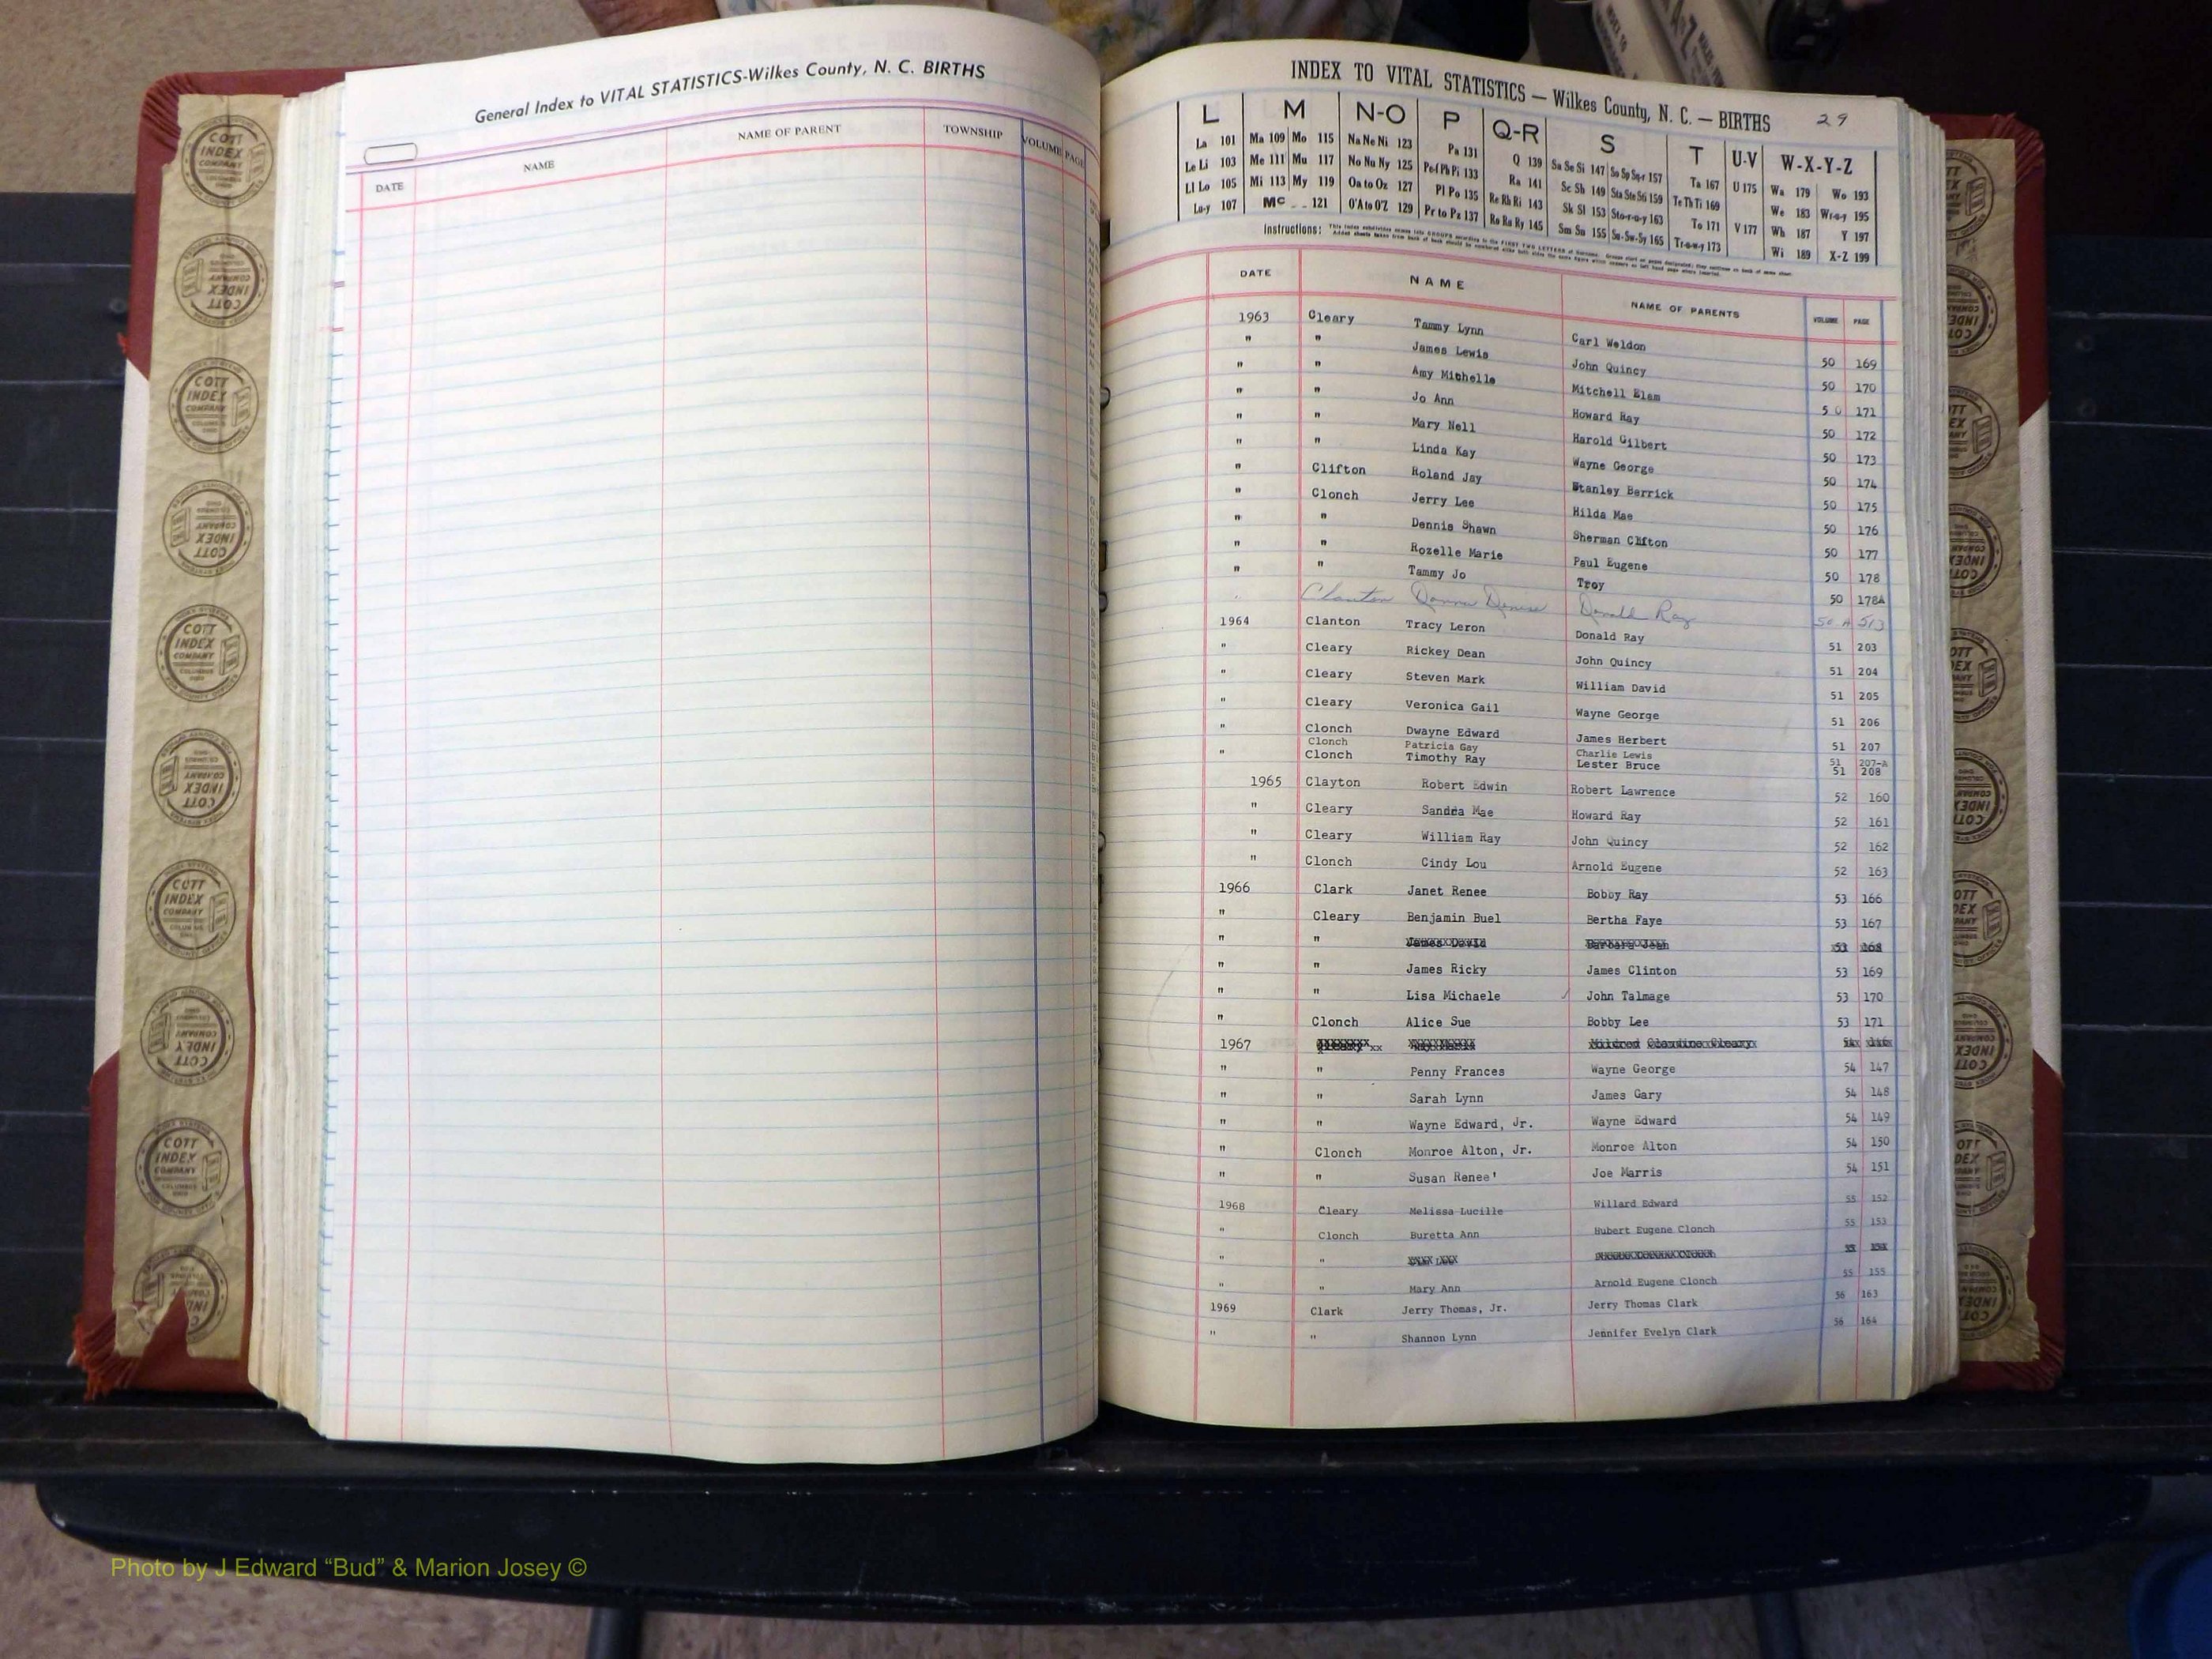 General Index to VITAL STATISTICS-Wilkes County, N. C. BIRTHS
DATE NAME NAME OF PARENT TOWNSHIP VOLUME PAGE
INDEX TO VITAL STATISTICS — Wilkes County, N. C. — BIRTHS 29
L M N-O P Q-R S T U-V W-X-Y-Z
La 101 Ma 109 Mo 115 Na Ne Ni 123 Pa 131 Q 139 Sa Se Si 147 So Sp Sq-r 157 Ta 167 U 175 Wa 179 Wo 193
Le Li 103 Me 111 Mu 117 No Nu Ny 125 Pe-f Ph Pi 133 Ra 141 Sc Sh 149 Sta Ste Sti 159 Te Th Ti 169 We 183 Wr-u-y 195
Ll Lo 105 Mi 113 My 119 Oa to Oz 127 Pl Po 135 Re Rh Ri 143 Sk Sl 153 Sto-r-u-y 163 To 171 V 177 Wh 187 Y 197
Lu-y 107 Mc - - 121 O'A to O'Z 129 Pr to Pz 137 Ro Ru Ry 145 Sm Sn 155 Su-Sw-Sy 165 Tr-u-w-y 173 Wi 189 X-Z 199
Instructions:
DATE NAME NAME OF PARENTS VOLUME PAGE
1963 Cleary Tammy Lynn Carl Weldon 50 169
" " James Lewis John Quincy 50 170
" " Amy Michelle Mitchell Elam 50 171
" " Jo Ann Howard Ray 50 172
" " Mary Nell Harold Gilbert 50 173
" " Linda Kay Wayne George 50 174
" Clifton Roland Jay Stanley Berrick 50 175
" Clonch Jerry Lee Hilda Mae 50 176
" " Dennis Shawn Sherman Clifton 50 177
" " Rozelle Marie Paul Eugene 50 178
" " Tammy Jo Troy 50 178A
" Clanton Donna Denise Donald Ray 50-A 513
1964 Clanton Tracy Leron Donald Ray 51 203
" Cleary Rickey Dean John Quincy 51 204
" Cleary Steven Mark William David 51 205
" Cleary Veronica Gail Wayne George 51 206
" Clonch Dwayne Edward James Herbert 51 207
Clonch Patricia Gay Charlie Lewis 51 207-A
" Clonch Timothy Ray Lester Bruce 51 208
1965 Clayton Robert Edwin Robert Lawrence 52 160
" Cleary Sandra Mae Howard Ray 52 161
" Cleary William Ray John Quincy 52 162
" Clonch Cindy Lou Arnold Eugene 52 163
1966 Clark Janet Renee Bobby Ray 53 166
" Cleary Benjamin Buel Bertha Faye 53 167
" " James David Barbara Jean 53 168
" " James Ricky James Clinton 53 169
" " Lisa Michaele John Talmage 53 170
" Clonch Alice Sue Bobby Lee 53 171
1967 Cleary Mildred Claudine Cleary
" " Penny Frances Wayne George 54 147
" " Sarah Lynn James Gary 54 148
" " Wayne Edward, Jr. Wayne Edward 54 149
" Clonch Monroe Alton, Jr. Monroe Alton 54 150
" " Susan Renee' Joe Marris 54 151
1968 Cleary Melissa Lucille Willard Edward 55 152
" Clonch Buretta Ann Hubert Eugene Clonch 55 153
" "
" " Mary Ann Arnold Eugene Clonch 55 155
1969 Clark Jerry Thomas, Jr. Jerry Thomas Clark 56 163
" " Shannon Lynn Jennifer Evelyn Clark 56 164
COTT INDEX COMPANY
Photo by J Edward “Bud” & Marion Josey ©